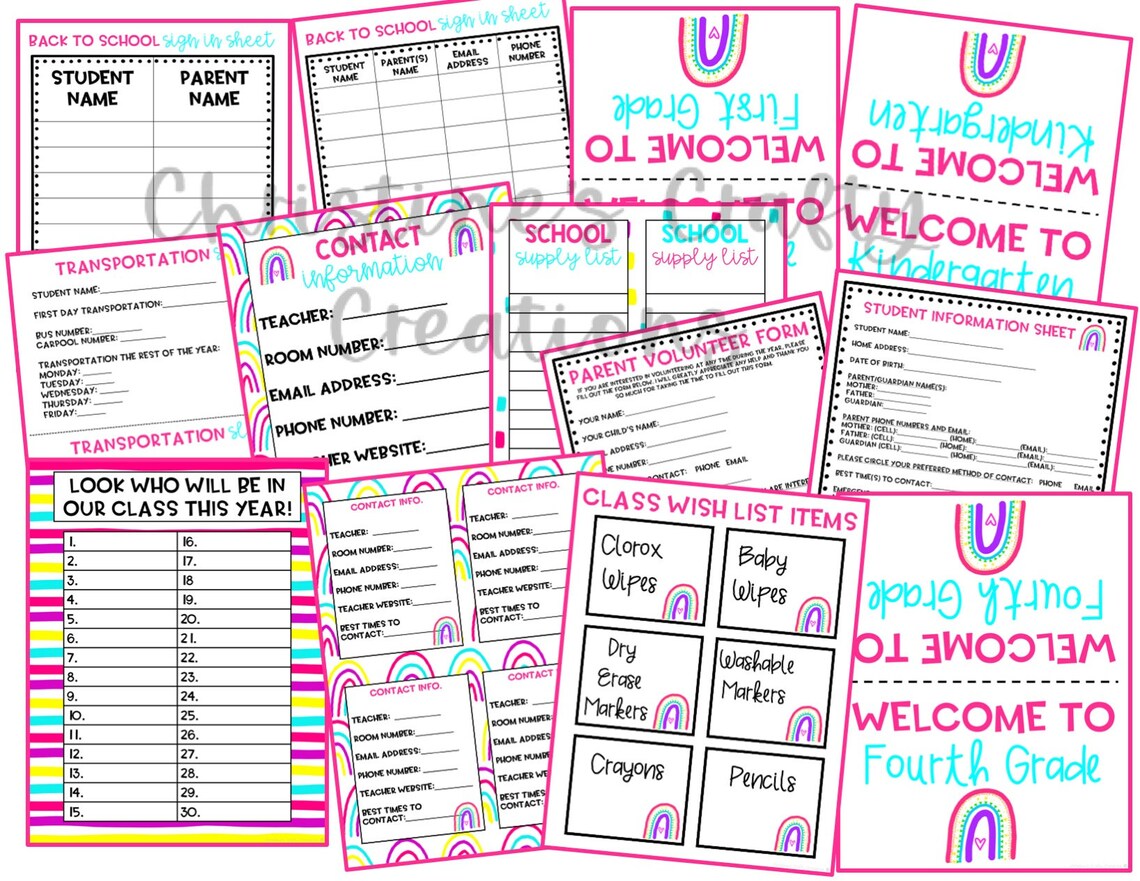 BACK TO SCHOOL sign in sheet
STUDENT NAME
PARENT NAME
BACK TO SCHOOL sign in sheet
STUDENT NAME
PARENT(S) NAME
EMAIL ADDRESS
PHONE NUMBER
First Grade
WELCOME TO
Kindergarten
WELCOME TO
WELCOME TO
Kindergarten
Christine's Crafty
Creations
TRANSPORTATION
STUDENT NAME:
FIRST DAY TRANSPORTATION:
BUS NUMBER:
CARPOOL NUMBER:
TRANSPORTATION THE REST OF THE YEAR:
MONDAY:
TUESDAY:
WEDNESDAY:
THURSDAY:
FRIDAY:
TRANSPORTATION
CONTACT
information
TEACHER:
ROOM NUMBER:
EMAIL ADDRESS:
PHONE NUMBER:
WEBSITE:
SCHOOL
supply list
SCHOOL
supply list
PARENT VOLUNTEER FORM
IF YOU ARE INTERESTED IN VOLUNTEERING AT ANY TIME DURING THE YEAR, PLEASE
FILL OUT THE FORM BELOW. I WILL GREATLY APPRECIATE ANY HELP AND THANK YOU
SO MUCH FOR TAKING THE TIME TO FILL OUT THIS FORM.
YOUR NAME:
YOUR CHILD'S NAME:
ADDRESS:
NUMBER:
CONTACT: PHONE EMAIL
STUDENT INFORMATION SHEET
STUDENT NAME:
HOME ADDRESS:
DATE OF BIRTH:
PARENT/GUARDIAN NAME(S):
MOTHER:
FATHER:
GUARDIAN:
PARENT PHONE NUMBERS AND EMAIL:
MOTHER: (CELL): (HOME): (EMAIL):
FATHER: (CELL): (HOME): (EMAIL):
GUARDIAN (CELL): (HOME): (EMAIL):
PLEASE CIRCLE YOUR PREFERRED METHOD OF CONTACT: PHONE EMAIL
BEST TIME(S) TO CONTACT:
LOOK WHO WILL BE IN
OUR CLASS THIS YEAR!
1. 16.
2. 17.
3. 18
4. 19.
5. 20.
6. 21.
7. 22.
8. 23.
9. 24.
10. 25.
11. 26.
12. 27.
13. 28.
14. 29.
15. 30.
CONTACT INFO.
TEACHER:
ROOM NUMBER:
EMAIL ADDRESS:
PHONE NUMBER:
TEACHER WEBSITE:
BEST TIMES TO
CONTACT:
CONTACT INFO.
TEACHER:
ROOM NUMBER:
EMAIL ADDRESS:
PHONE NUMBER:
TEACHER WEBSITE:
BEST TIMES TO
CONTACT:
CONTACT INFO.
TEACHER:
ROOM NUMBER:
EMAIL ADDRESS:
PHONE NUMBER:
TEACHER WEBSITE:
BEST TIMES TO
CONTACT:
CONTACT
TEACHER:
ROOM NUMBER:
EMAIL ADDRESS:
PHONE NUMBER:
TEACHER
BEST TIMES
CONTACT:
CLASS WISH LIST ITEMS
Clorox
Wipes
Baby
Wipes
Dry
Erase
Markers
Washable
Markers
Crayons
Pencils
Fourth Grade
WELCOME TO
WELCOME TO
Fourth Grade